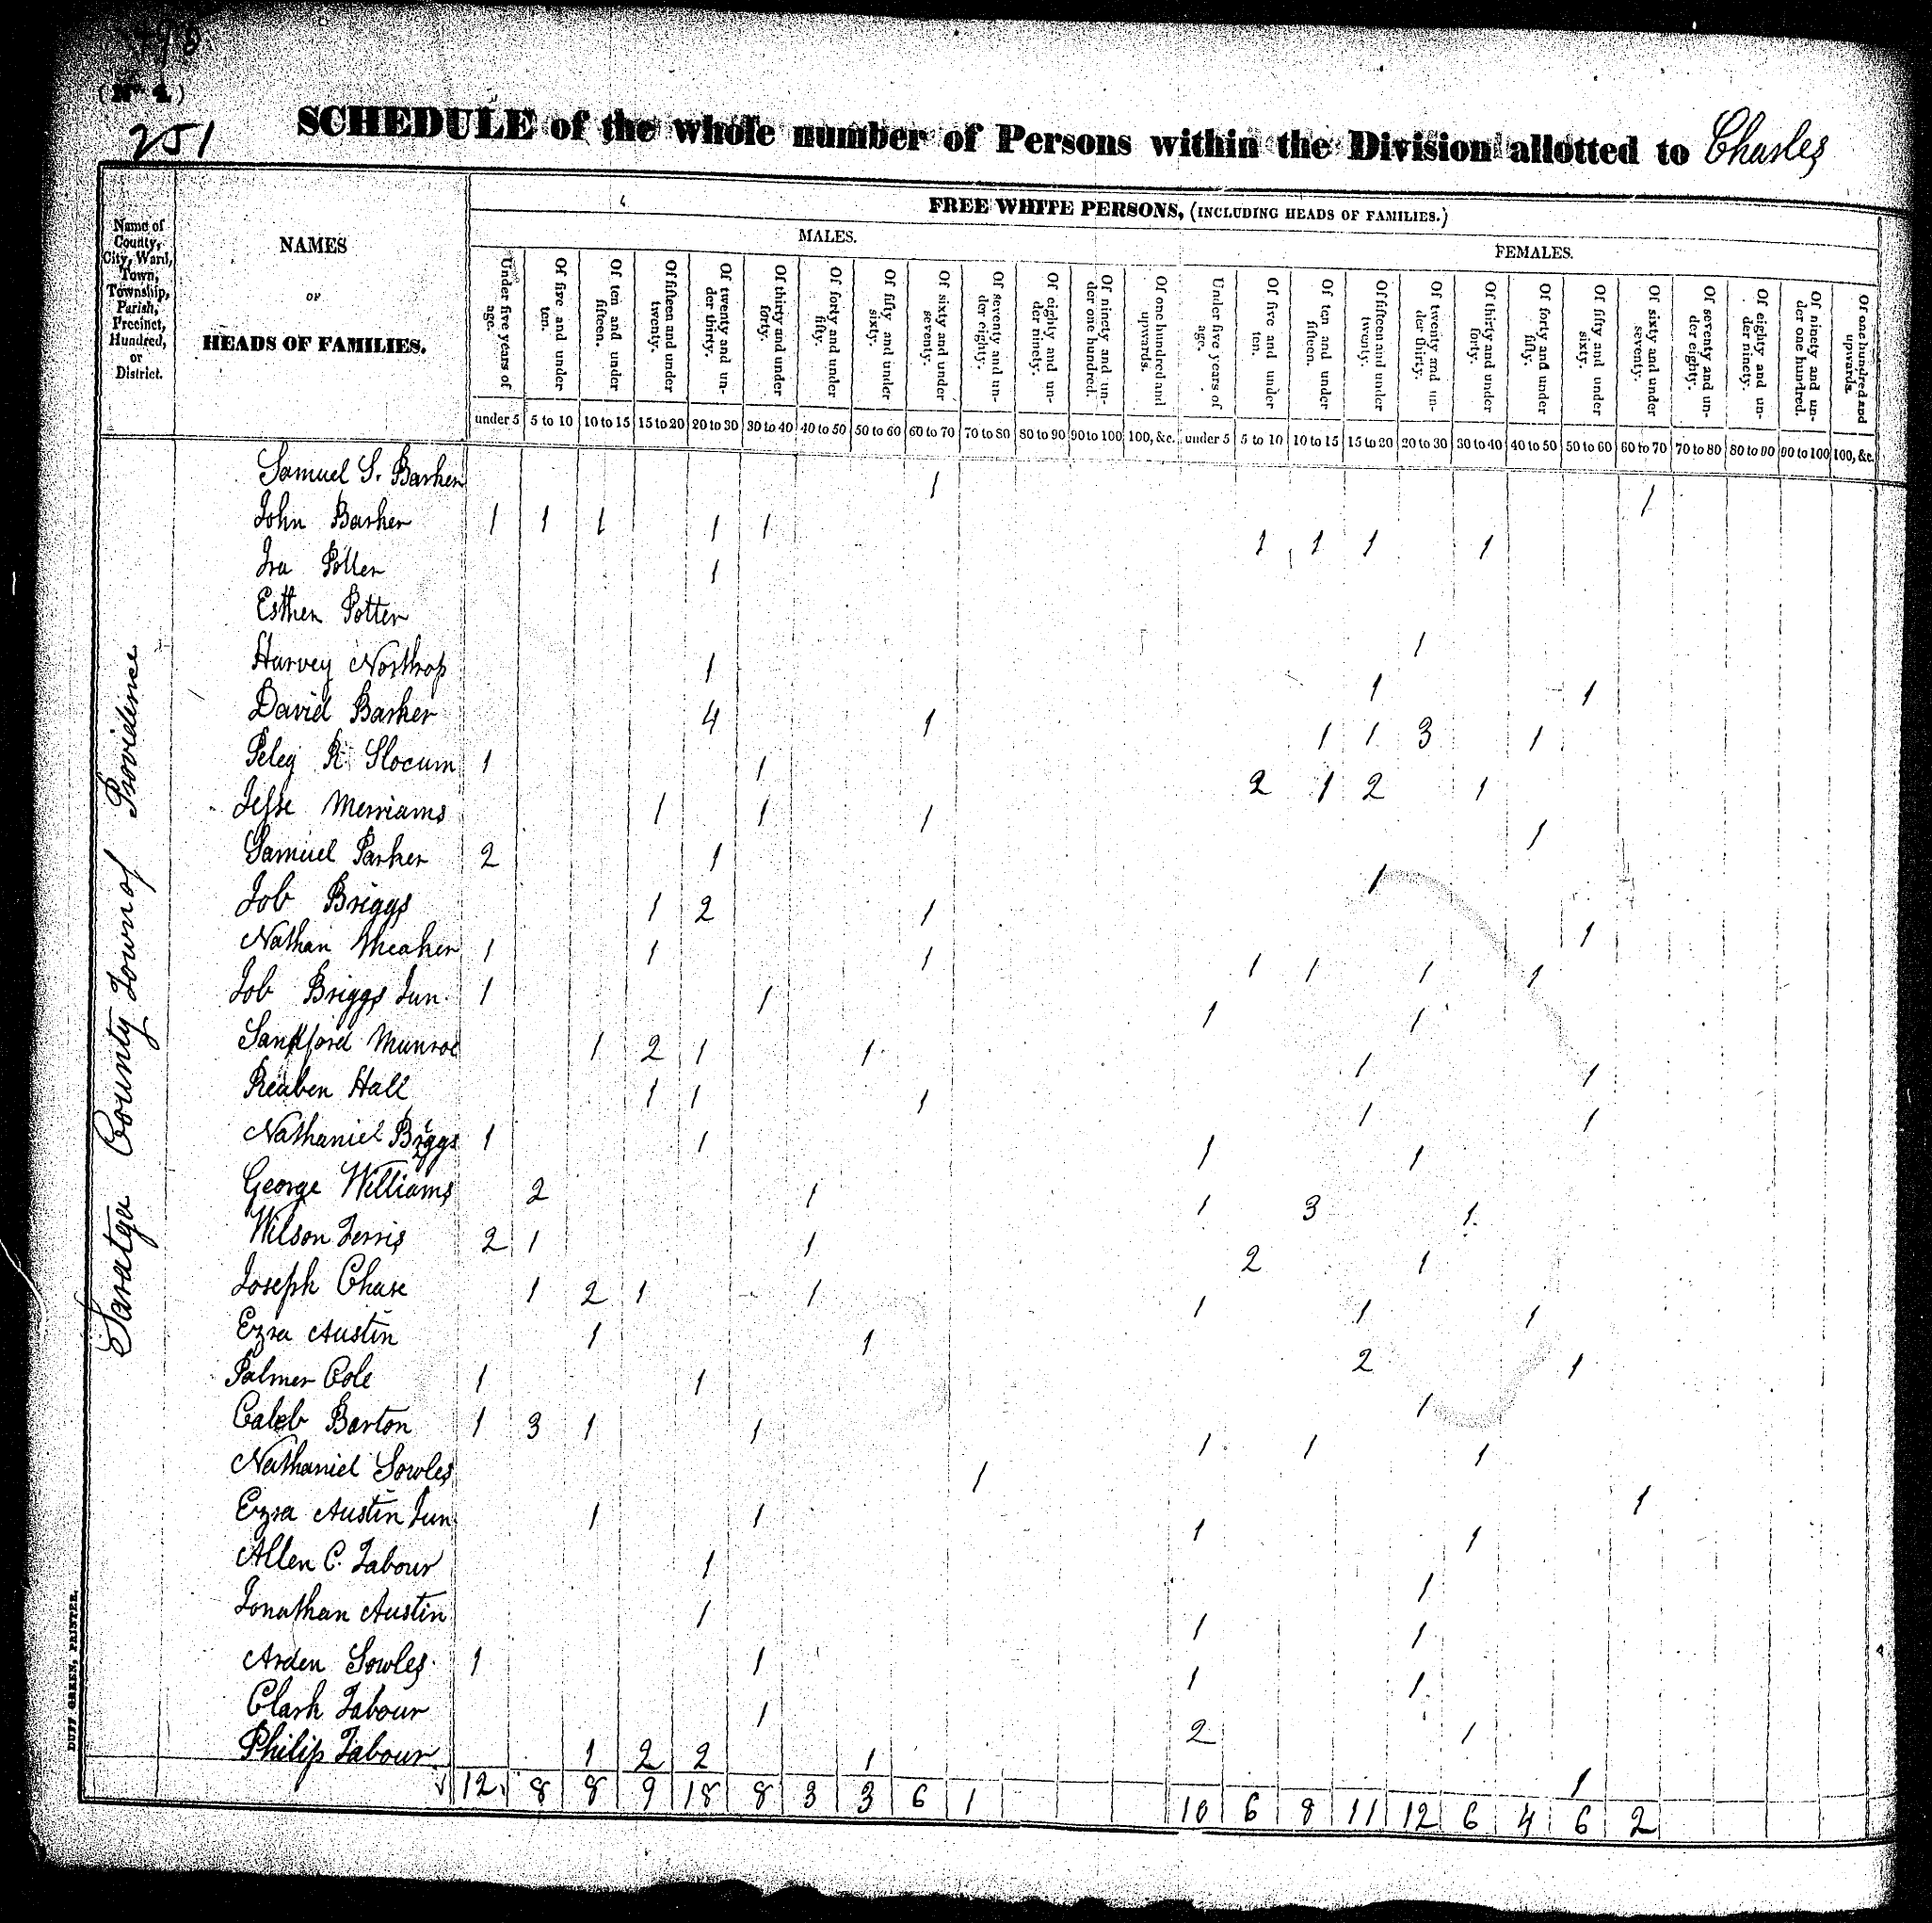 (No. 4.)
251
SCHEDULE of the whole number of Persons within the Division allotted to Charles
Name of County, City, Ward, Town, Township, Parish, Precinct, Hundred, or District.
NAMES
OF
HEADS OF FAMILIES.
FREE WHITE PERSONS, (INCLUDING HEADS OF FAMILIES.)
MALES.
FEMALES.
Under five years of age. Of five and under ten. Of ten and under fifteen. Of fifteen and under twenty. Of twenty and under thirty. Of thirty and under forty. Of forty and under fifty. Of fifty and under sixty. Of sixty and under seventy. Of seventy and under eighty. Of eighty and under ninety. Of ninety and under one hundred. Of one hundred and upwards. Under five years of age. Of five and under ten. Of ten and under fifteen. Of fifteen and under twenty. Of twenty and under thirty. Of thirty and under forty. Of forty and under fifty. Of fifty and under sixty. Of sixty and under seventy. Of seventy and under eighty. Of eighty and under ninety. Of ninety and under one hundred. Of one hundred and upwards.
under 5 5 to 10 10 to 15 15 to 20 20 to 30 30 to 40 40 to 50 50 to 60 60 to 70 70 to 80 80 to 90 90 to 100 100, &c. under 5 5 to 10 10 to 15 15 to 20 20 to 30 30 to 40 40 to 50 50 to 60 60 to 70 70 to 80 80 to 90 90 to 100 100, &c.
Saratga County Town of Providence
Samuel S. Barker 1 1
John Barker 1 1 1 1 1 1 1 1 1
Ira Potter 1
Esther Potter 1
Harvey Northrop 1 1 1
David Barker 4 1 1 1 3 1
Peleg R Slocum 1 1 2 1 2 1
Jesse Merriams 1 1 1 1
Samuel Parker 2 1 1
Job Briggs 1 2 1 1
Nathan Meaker 1 1 1 1 1 1 1
Job Briggs Jun. 1 1 1 1
Sandford Munroe 1 2 1 1 1 1
Reuben Hall 1 1 1 1 1
Nathaniel Briggs 1 1 1 1
George Williams 2 1 1 3 1
Wilson Ferris 2 1 1 2 1
Joseph Chase 1 2 1 1 1 1 1
Ezra Austin 1 1 2 1
Palmer Cole 1 1 1
Caleb Barton 1 3 1 1 1 1 1
Nathaniel Sowles 1 1
Ezra Austin Jun 1 1 1 1
Allen C. Tabour 1 1
Jonathan Austin 1 1 1
Arden Sowles 1 1 1 1
Clark Tabour 1 2 1
Philip Tabour 1 2 2 1 1
12 8 8 9 18 8 3 3 6 1 10 6 8 11 12 6 4 6 2
DUFF GREEN, PRINTER.